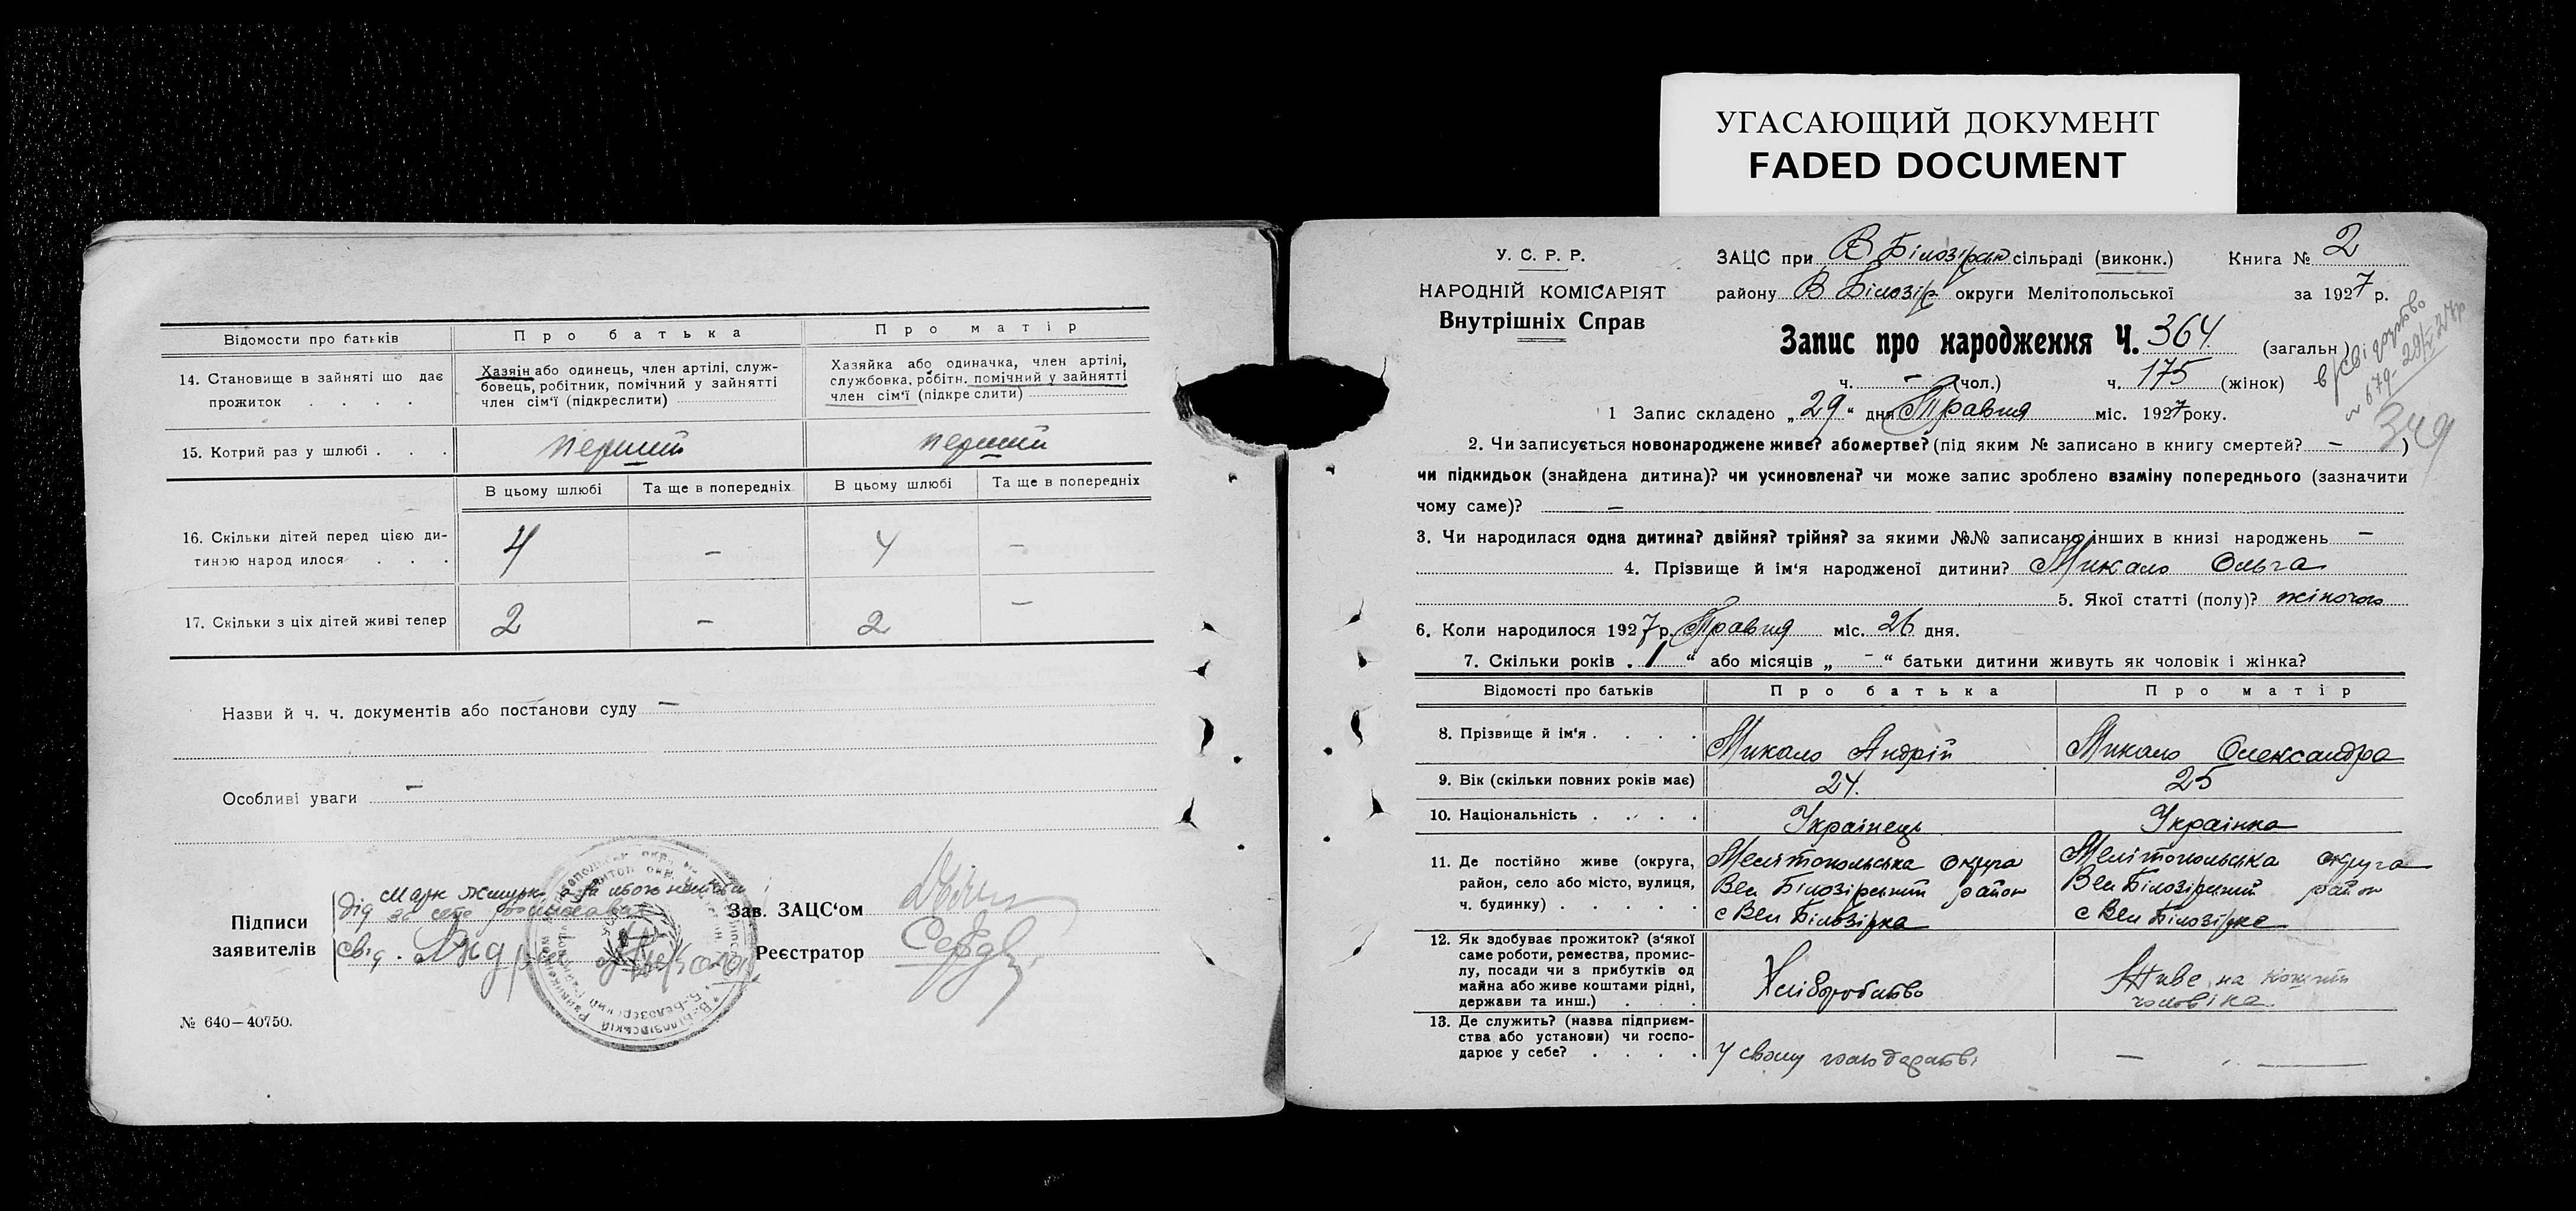 УГАСАЮЩИЙ ДОКУМЕНТ
FADED DOCUMENT
Відомости про батьків
Про батька
Про матір
14. Становище в зайняті що дає
прожиток . . . .
Хазяїн або одинець, член артілі, служ-
бовець, робітник, помічний у зайнятті
член сім'ї (підкреслити)
Хазяйка або одиначка, член артілі,
службовка, робітн. помічний у зайнятті
член сім'ї (підкреслити)
15. Котрий раз у шлюбі . . .
перший
перший
В цьому шлюбі
Та ще в попередніх
В цьому шлюбі
Та ще в попередніх
16. Скільки дітей перед цією ди-
тиною народилося . . .
4 – 4 –
17. Скільки з ціх дітей живі тепер
2 – 2 –
Назви й ч. ч. документів або постанови суду –
Особливі уваги –
Підписи
заявителів
дід Марк
за себе
свід. Анд
Зав. ЗАЦС'ом
Реєстратор
№ 640—40750.
У. С. Р. Р.
НАРОДНІЙ КОМІСАРІЯТ
Внутрішніх Справ
ЗАЦС при В Білозірськ сільраді (виконк.) Книга № 2
району В Білозір округи Мелітопольської за 1927 р.
Запис про народження Ч. 364 (загальн)
ч. – (чол.) ч. 175 (жінок)
349
1 Запис складено „29" дня Травня міс. 1927 року.
2. Чи записується новонароджене живе? або мертве? (під яким № записано в книгу смертей? – )
чи підкидьок (знайдена дитина)? чи усиновлена? чи може запис зроблено взаміну попереднього (зазначити
чому саме)? –
3. Чи народилася одна дитина? двійня? трійня? за якими №№ записано інших в книзі народжень –
4. Прізвище й ім'я народженої дитини? Микало Ольга
5. Якої статті (полу)? жіночого
6. Коли народилося 1927 р. Травня міс. 26 дня.
7. Скільки років . 1 " або місяців „ – " батьки дитини живуть як чоловік і жінка?
Відомості про батьків
Про батька
Про матір
8. Прізвище й ім'я . . . .
Микало Андрій
Микало Олександра
9. Вік (скільки повних років має)
24.
25
10. Національність . . . .
Українець
Українка
11. Де постійно живе (округа,
район, село або місто, вулиця,
ч. будинку) . . . . .
Мелітопольська округа
Вел Білозірський район
с Вел Білозірка
Мелітопольська округа
Вел Білозірський район
с Вел Білозірка
12. Як здобуває прожиток? (з'якої
саме роботи, ремества, промис-
лу, посади чи з прибутків од
майна або живе коштами рідні,
держави та инш.) . . . .
Хліборобство
Живе на кошти
чоловіка.
13. Де служить? (назва підприєм-
ства або установи) чи госпо-
дарює у себе? . . . .
У свому господарстві
–